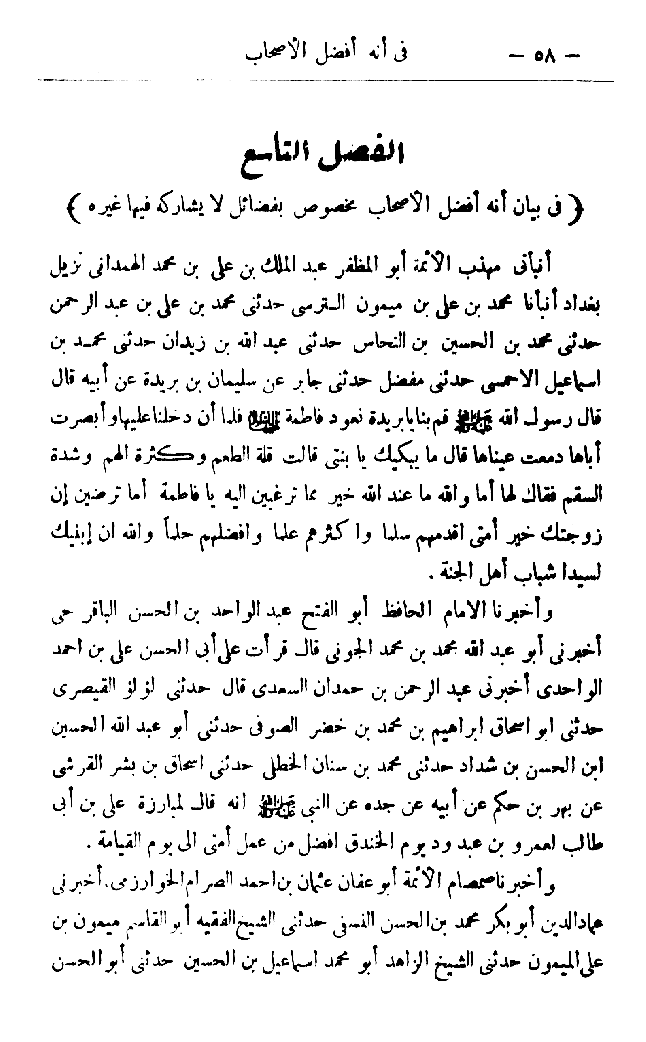 — ٥٨ — فى أنه أفضل الأصحاب
الفصل التاسع
﴿ فى بيان أنه أفضل الأصحاب مخصوص بفضائل لا يشاركه فيها غيره ﴾
أنبأنى مهذب الأئمة أبو المظفر عبد الملك بن على بن محمد الهمدانى نزيل
بغداد أنبأنا محمد بن على بن ميمون النرسى حدثنى محمد بن على بن عبد الرحمن
حدثنى محمد بن الحسين بن النحاس حدثنى عبد الله بن زيدان حدثنى محمد بن
اسماعيل الاحمسى حدثنى مفضل حدثنى جابر عن سليمان بن بريدة عن أبيه قال
قال رسول الله ﷺ قم بنا يا بريدة نعود فاطمة فلما أن دخلنا عليها وأبصرت
أباها دمعت عيناها قال ما يبكيك يا بنتى قالت قلة الطعم وكثرة الهم وشدة
السقم فقال لها أما والله ما عند الله خير مما ترغبين اليه يا فاطمة أما ترضين إن
زوجتك خير أمتى اقدمهم سلما واكثرهم علما وافضلهم حلماً والله ان إبنيك
لسيدا شباب أهل الجنة .
وأخبرنا الامام الحافظ أبو الفتح عبد الواحد بن الحسن الباقرحى
أخبرنى أبو عبد الله محمد بن محمد الجونى قال قرأت على أبى الحسن على بن احمد
الواحدى أخبرنى عبد الرحمن بن حمدان السعدى قال حدثنى لؤلؤ القيصرى
حدثنى ابو اسحاق ابراهيم بن محمد بن خضر الصوفى حدثنى أبو عبد الله الحسين
ابن الحسن بن شداد حدثنى محمد بن سنان الحنظلى حدثنى اسحاق بن بشر القرشى
عن بهر بن حكم عن أبيه عن جده عن النبى ﷺ انه قال لمبارزة على بن أبى
طالب لعمرو بن عبد ود يوم الخندق افضل من عمل أمتى الى يوم القيامة .
وأخبرنا صمصام الأئمة أبو عفان عثمان بن احمد الصرام الخوارزمى، أخبرنى
عماد الدين أبو بكر محمد بن الحسن النسفى حدثنى الشيخ الفقيه أبو القاسم ميمون بن
على الميمون حدثنى الشيخ الزاهد أبو محمد اسماعيل بن الحسين حدثنى أبو الحسن